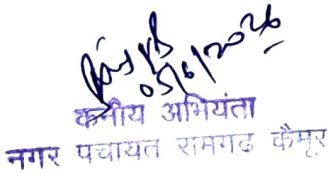 05/6/2026
कनीय अभियंता
नगर पंचायत रामगढ कैमूर